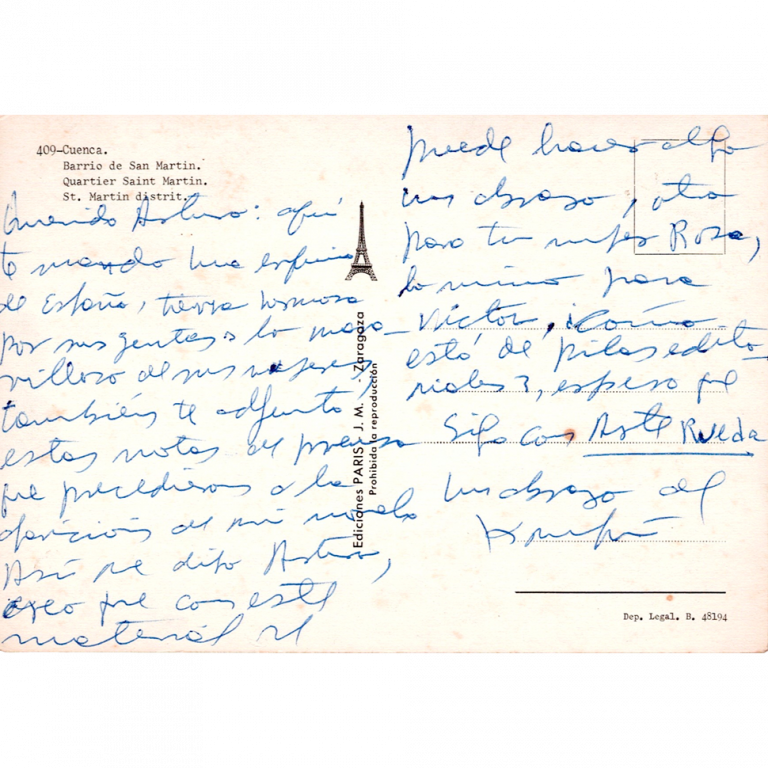 409-Cuenca.
Barrio de San Martin.
Quartier Saint Martin.
St. Martin distrit.
Querido Arturo: aquí
te mando una
de España, tierra hermosa
por sus gentes, lo mara-
villoso de sus mujeres,
también te adjunto,
estas notas de prensa
que precedieron a la
aparición de mi novela
Así que dijo Arturo,
creo que con este
material si
Ediciones PARIS J. M. - Zaragoza
Prohibida la reproducción
puede hacer algo
un abrazo, otro
para tu mujer Rosa,
lo mismo para
Victor, ¿Como
está de pilas edito-
riales?, espero que
siga con Arte Rueda
Un abrazo del
Dep. Legal. B. 48194